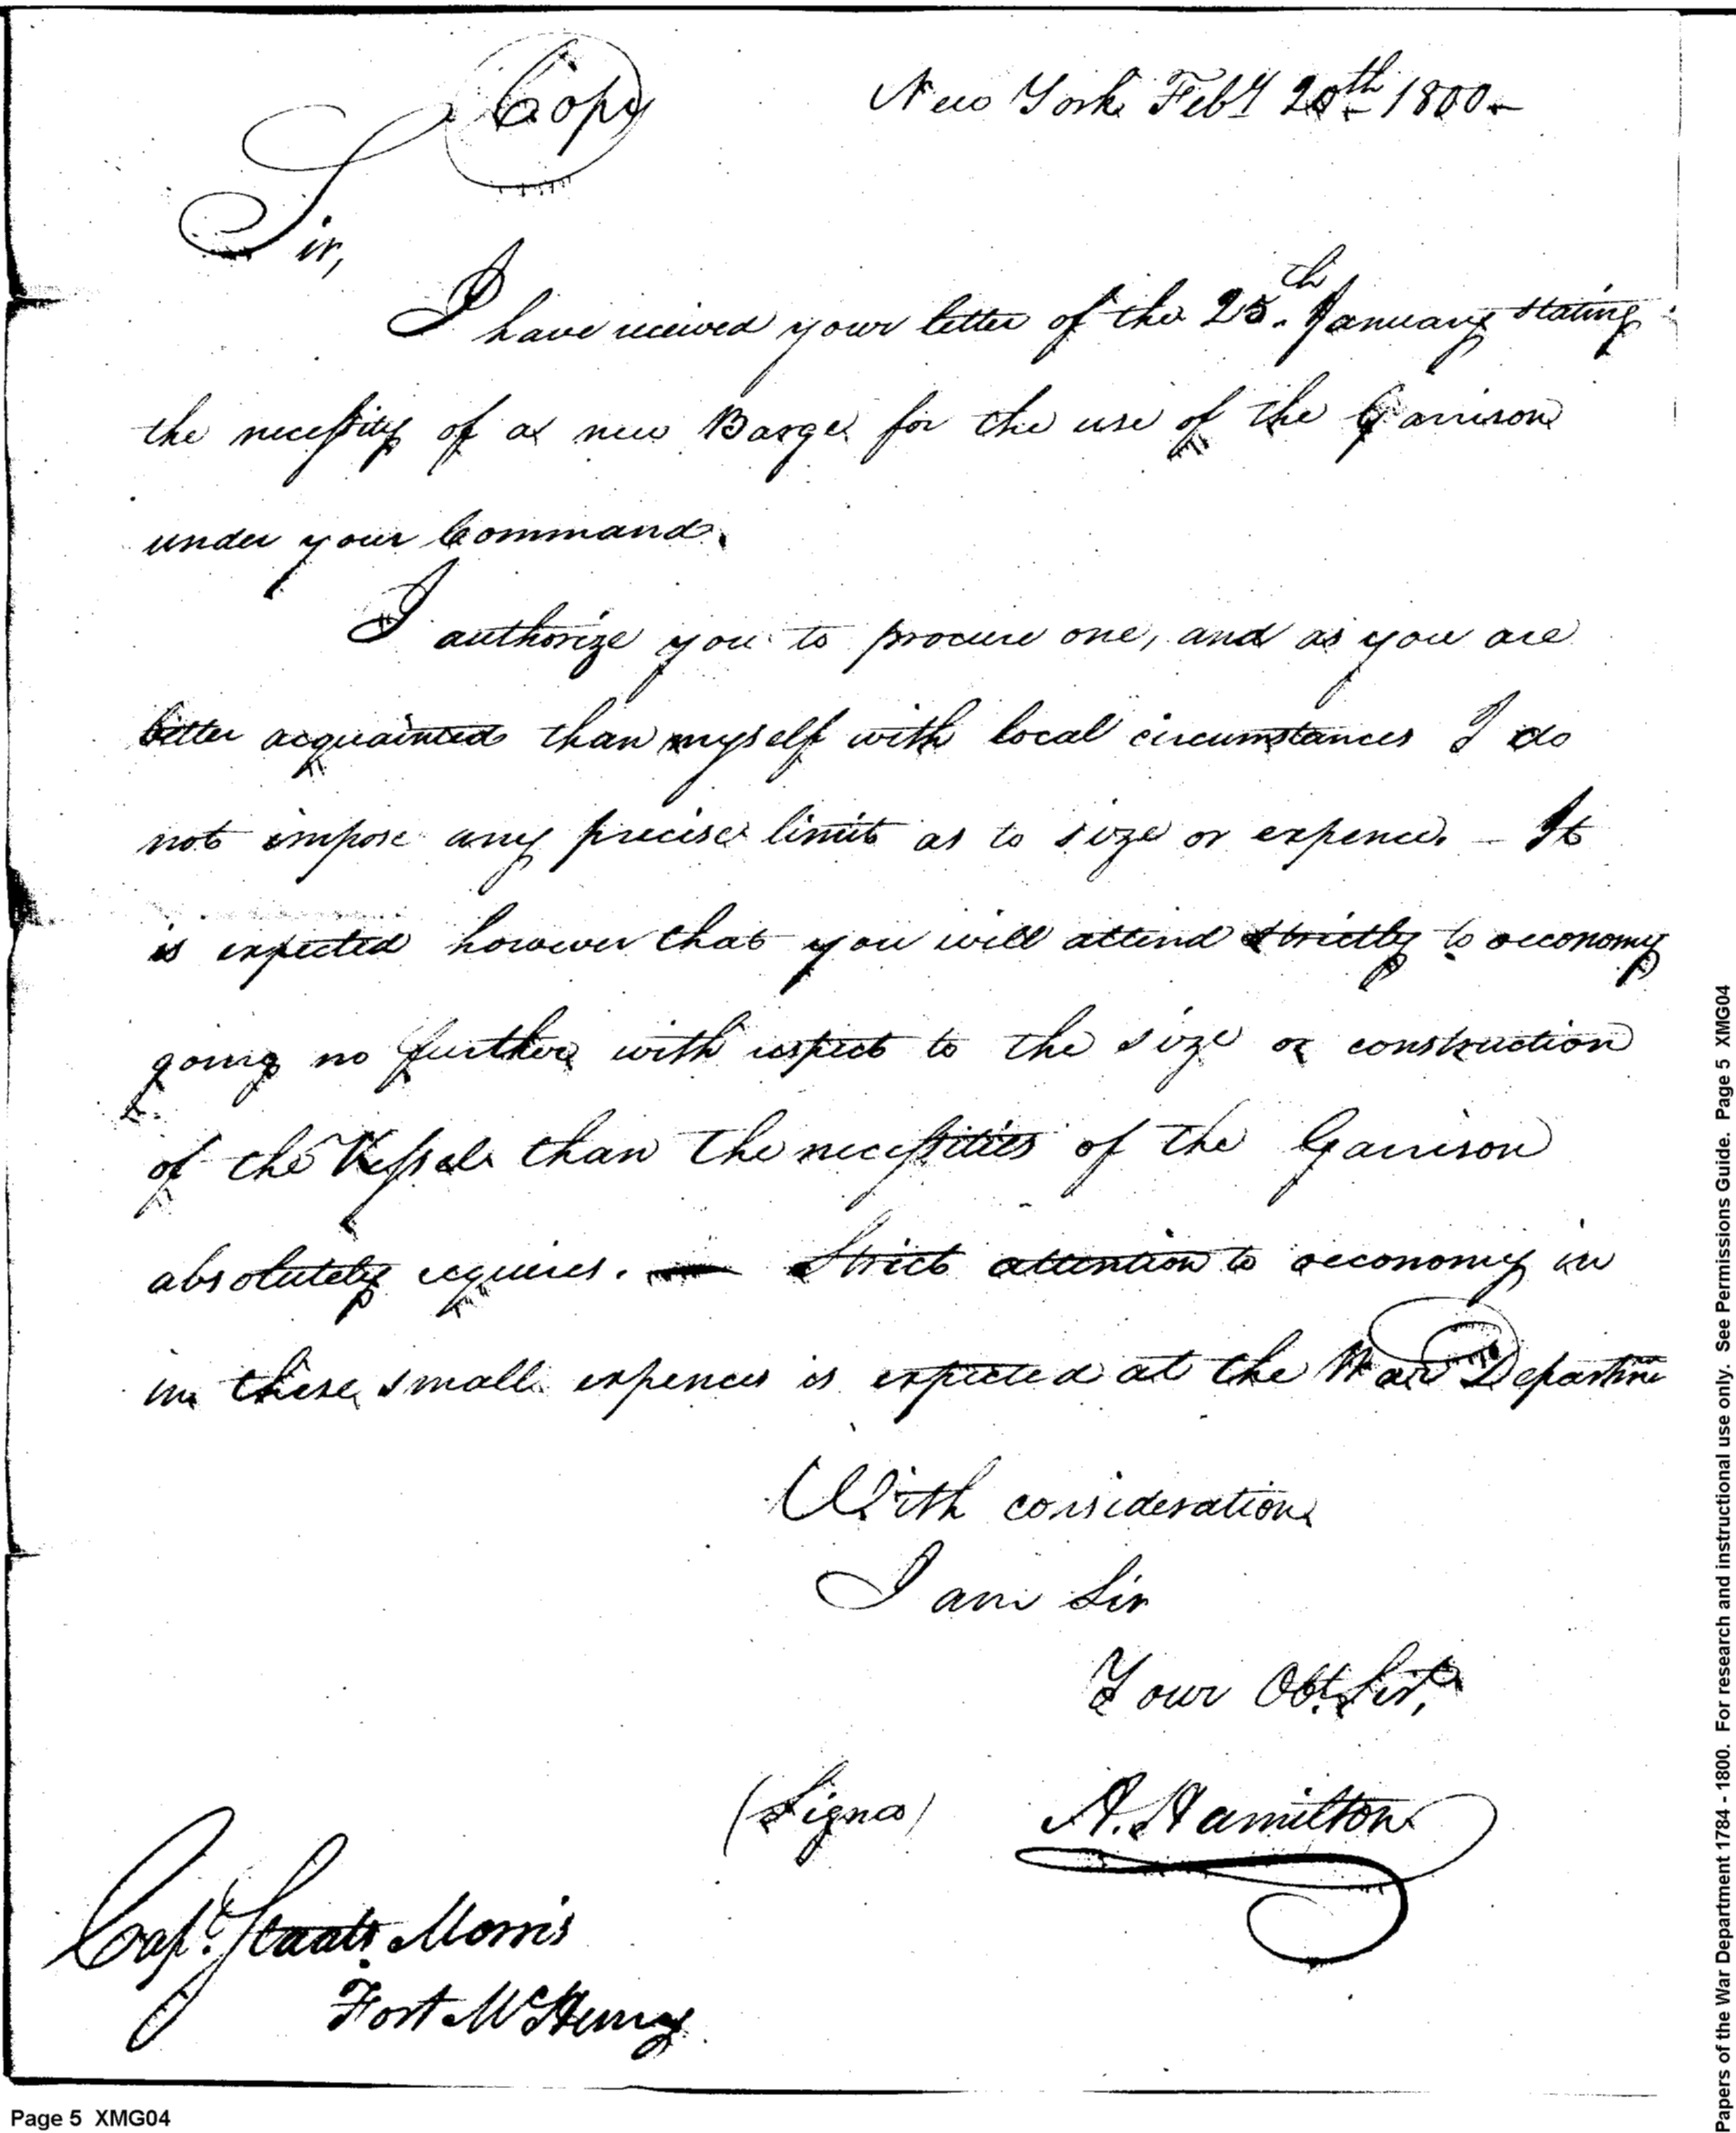 Copy
New York Feby 20th 1800.
Sir,
I have received your letter of the 25th January stating
the necessity of a new Barge for the use of the Garrison
under your Command.
I authorize you to procure one, and as you are
better acquainted than myself with local circumstances I do
not impose any precise limit as to size or expence. - It
is expected however that you will attend strictly to oeconomy
going no further with respect to the size or construction
of the Vessel than the necessities of the Garrison
absolutely requires. — Strict attention to oeconomy in
in these small expences is expected at the War Departme
With consideration
I am Sir
Your Obt. Sert,
(Signd) A. Hamilton
Capt. Staats Morris
Fort McHenry
Page 5 XMG04
Papers of the War Department 1784 - 1800. For research and instructional use only. See Permissions Guide. Page 5 XMG04